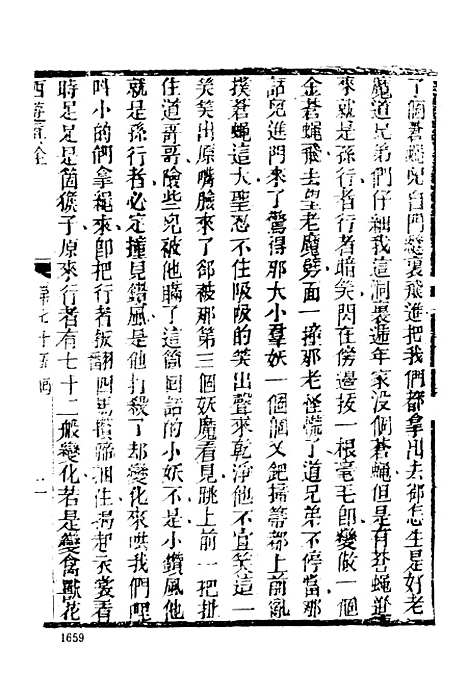 了個蒼蠅兒自門縫裏飛進把我們都拿出去却怎生是好老
魔道兄弟們仔細我這洞裏遞年家沒個蒼蠅但是有蒼蠅進
來就是孫行者行者暗笑閃在傍邊拔一根毫毛卽變做一個
金蒼蠅飛去望老魔劈面一撞那老怪慌了道兄弟不停當那
話兒進門來了驚得那大小羣妖一個個丫鈀掃箒都上前亂
撲蒼蠅這大聖忍不住吸吸的笑出聲來乾淨他不宜笑這一
笑笑出原嘴臉來了却被那第三個妖魔看見跳上前一把扯
住道哥哥險些兒被他瞞了這箇回話的小妖不是小鑽風他
就是孫行者必定撞見鑽風是他打殺了却變化來哄我們哩
叫小的們拿繩來卽把行者扳翻四馬攢蹄捆住揭起衣裳看
時足足是箇猴子原來行者有七十二般變化若是變禽獸花
西遊
第七十五
1659